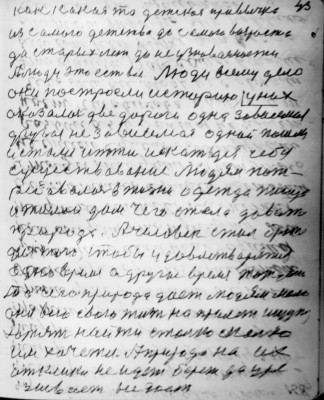 43
как какая то детская привычка
из самого детства до самого возраста
до старых лет до не узноваемости
Люди это естьли Люди всему дело
они построели историю у них
оказалось две дороги одна зависемая
другая не зависемая одной пошли
истали итти искать для себя
существование Людям пот-
ребовалось в жизни одежда пища
и жилой дом чего стала давать
природа. Ачеловек стал
чтобы удовлетварятся
водно время а другое время
природа дает людям мало
они всю свою жизнь на
хотят найти столко сколко
им хочется. Априрода на их
не идет берет да
не дает